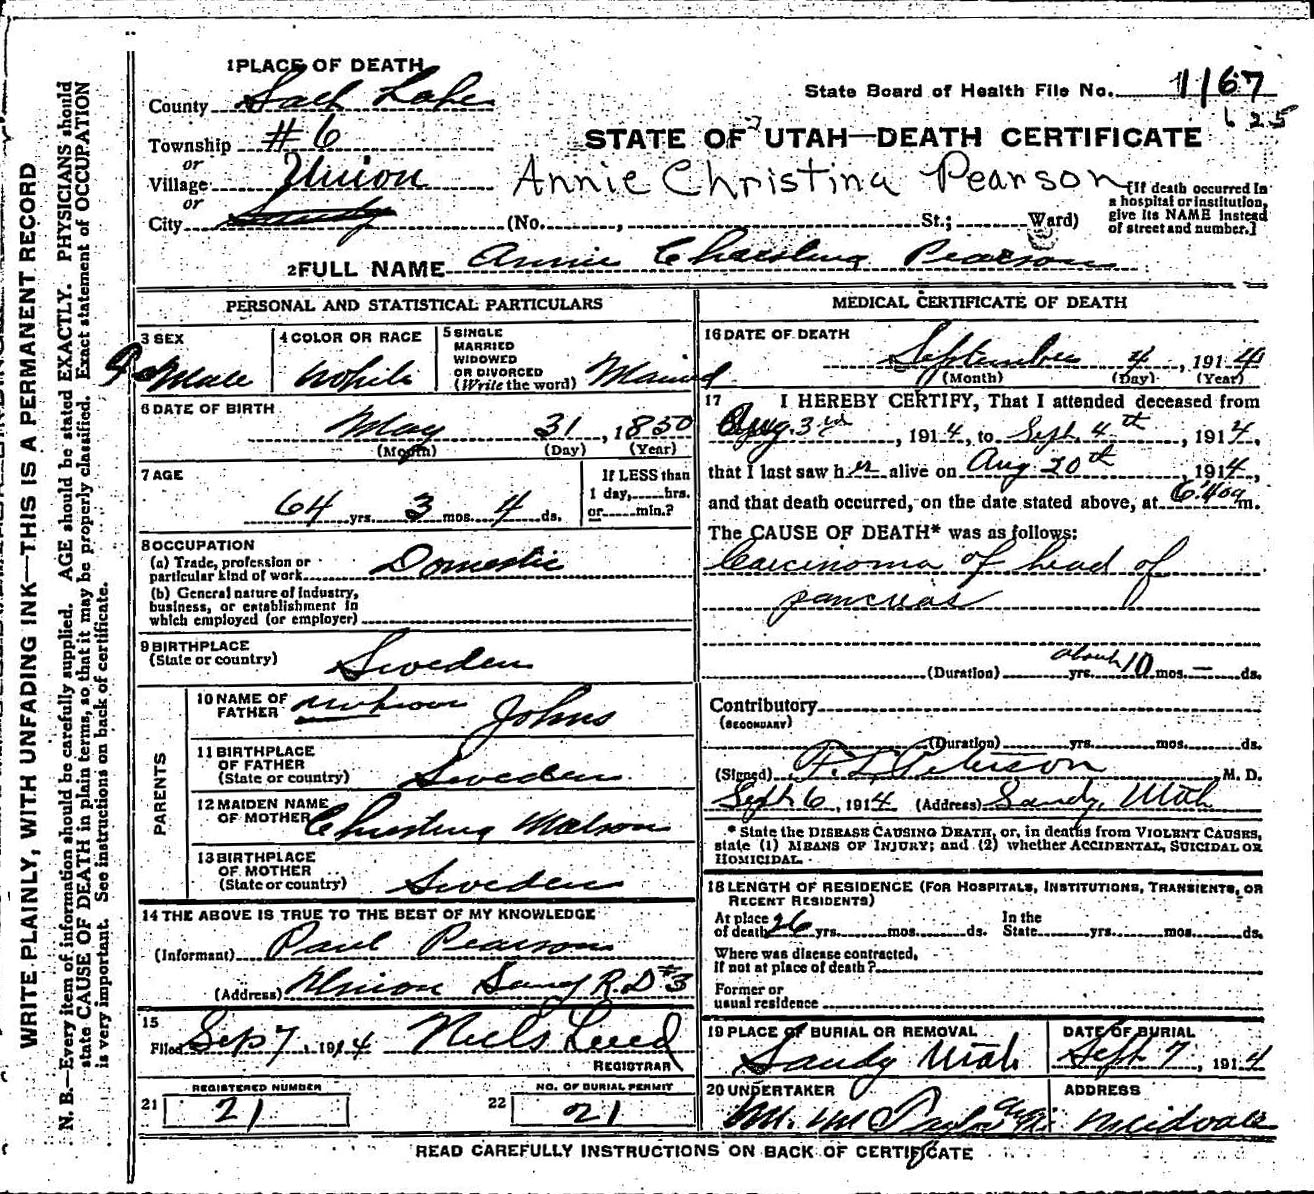 1 PLACE OF DEATH
County Salt Lake
Township # 6
or
Village Union
or
City Sandy
State Board of Health File No. 1167
625
STATE OF UTAH—DEATH CERTIFICATE
Annie Christina Pearson
(No. , St.; Ward)
[If death occurred in
a hospital or institution,
give its NAME instead
of street and number.]
2 FULL NAME Annie Christina Pearson
PERSONAL AND STATISTICAL PARTICULARS
3 SEX
Female
4 COLOR OR RACE
White
5 SINGLE
MARRIED
WIDOWED
OR DIVORCED
(Write the word) Married
6 DATE OF BIRTH
May 31, 1850
(Month) (Day) (Year)
7 AGE
64 yrs. 3 mos. 4 ds.
If LESS than
1 day, hrs.
or min.?
8 OCCUPATION
(a) Trade, profession or
particular kind of work Domestic
(b) General nature of industry,
business, or establishment in
which employed (or employer)
9 BIRTHPLACE
(State or country) Sweden
PARENTS
10 NAME OF
FATHER unknown Johns
11 BIRTHPLACE
OF FATHER
(State or country) Sweden
12 MAIDEN NAME
OF MOTHER Christina
13 BIRTHPLACE
OF MOTHER
(State or country) Sweden
14 THE ABOVE IS TRUE TO THE BEST OF MY KNOWLEDGE
(Informant) Paul Pearson
(Address) Union Sandy R.D #3
15
Filed Sep 7, 1914 Niels Lind
REGISTRAR
REGISTERED NUMBER
21 21
NO. OF BURIAL PERMIT
22 21
MEDICAL CERTIFICATE OF DEATH
16 DATE OF DEATH
September 4, 1914
(Month) (Day) (Year)
17 I HEREBY CERTIFY, That I attended deceased from
Aug. 3rd, 1914, to Sept. 4th, 1914,
that I last saw her alive on Aug 20th, 1914,
and that death occurred, on the date stated above, at 6:40 a m.
The CAUSE OF DEATH* was as follows:
Carcinoma of head of
pancreas
(Duration) yrs. about 10 mos. — ds.
Contributory
(SECONDARY)
(Duration) yrs. mos. ds.
(Signed) Peterson M. D.
Sept. 6, 1914 (Address) Sandy, Utah
* State the DISEASE CAUSING DEATH, or, in deaths from VIOLENT CAUSES,
state (1) MEANS OF INJURY; and (2) whether ACCIDENTAL, SUICIDAL OR
HOMICIDAL.
18 LENGTH OF RESIDENCE (FOR HOSPITALS, INSTITUTIONS, TRANSIENTS, OR
RECENT RESIDENTS)
At place
of death 26 yrs. mos. ds.
In the
State yrs. mos. ds.
Where was disease contracted,
if not at place of death?
Former or
usual residence
19 PLACE OF BURIAL OR REMOVAL
Sandy Utah
DATE OF BURIAL
Sept 7, 1914
20 UNDERTAKER
ADDRESS
Midvale
READ CAREFULLY INSTRUCTIONS ON BACK OF CERTIFICATE
WRITE PLAINLY, WITH UNFADING INK—THIS IS A PERMANENT RECORD
N. B.—Every item of information should be carefully supplied. AGE should be stated EXACTLY. PHYSICIANS should
state CAUSE OF DEATH in plain terms, so that it may be properly classified. Exact statement of OCCUPATION
is very important. See instructions on back of certificate.